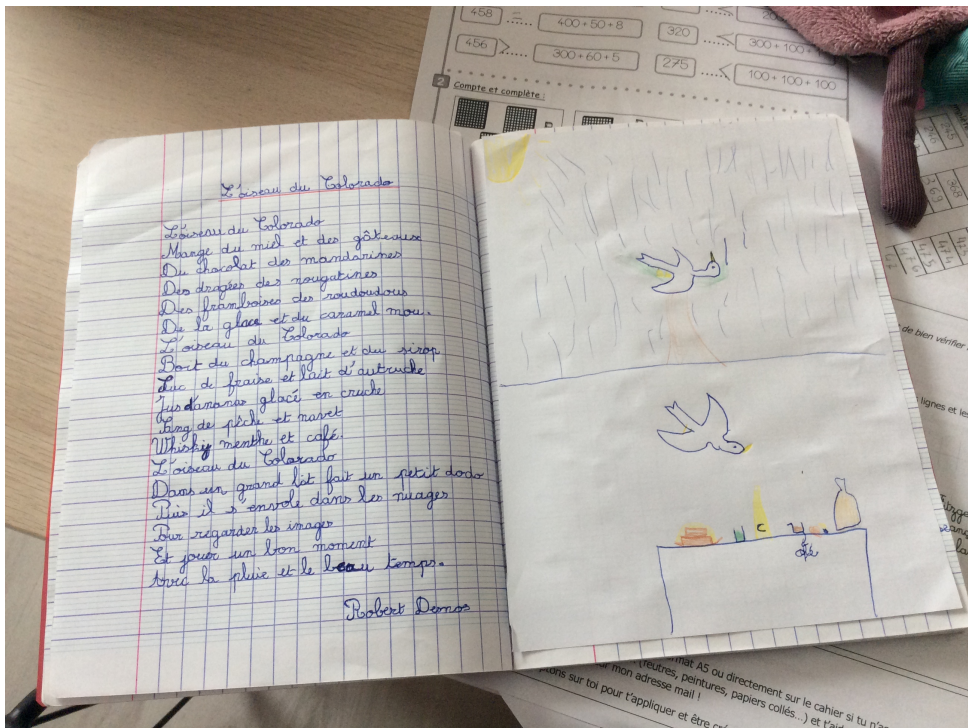 L'oiseau du Colorado
L'oiseau du Colorado
Mange du miel et des gâteaux
Du chocolat des mandarines
Des dragées des nougatines
Des framboises des roudoudous
De la glace et du caramel mou.
L'oiseau du Colorado
Boit du champagne et du sirop
Suc de fraise et lait d'autruche
Jus d'ananas glacé en cruche
Sang de pêche et navet
Whisky menthe et café.
L'oiseau du Colorado
Dans un grand lit fait un petit dodo
Puis il s'envole dans les nuages
Pour regarder les images
Et jouer un bon moment
Avec la pluie et le beau temps.
Robert Demos
458 = 400+50+8
320 < 300+100+
456 > 300+60+5
275 < 100+100+100
2 Compte et complète :
de bien vérifier
lignes et les
mat A5 ou directement sur le cahier si tu n'a
(feutres, peintures, papiers collés...) et t'aid
mon adresse mail !
ptons sur toi pour t'appliquer et être cré